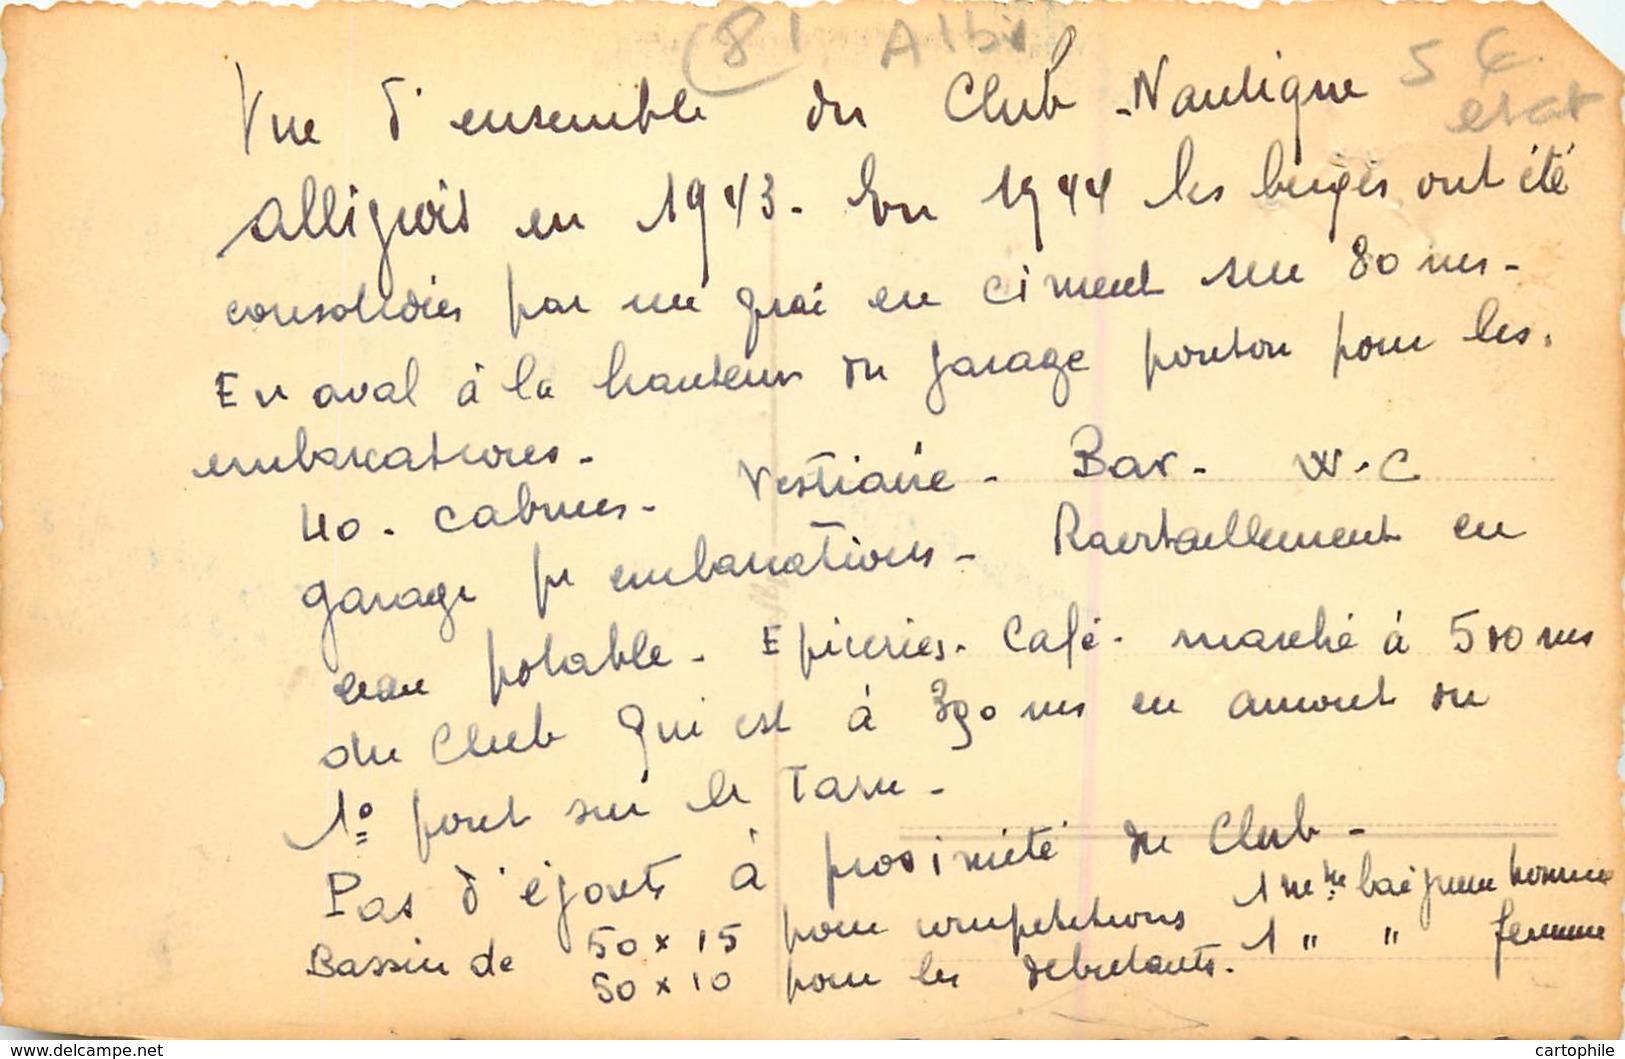 (81 Albi
5 €
etat
Vue d'ensemble du Club Nautique
albigeois en 1943. En 1944 les berges ont été
consolidées par un quai en ciment sur 80 ms.
En aval à la hauteur du garage ponton pour les
embarcations.
40. cabines. Vestiaire. Bar. W.C
garage pr embarcations. Ravitaillement en
eau potable. Epiceries. Café. marché à 500 ms
du Club qui est à 300 ms en amont du
1º pont sur le Tarn.
Pas d'égouts à proximité du Club.
Bassin de 50 x 15 pour compétitions 1 baigneur homme
50 x 10 pour les débutants. 1 " " femme
www.delcampe.net
cartophile